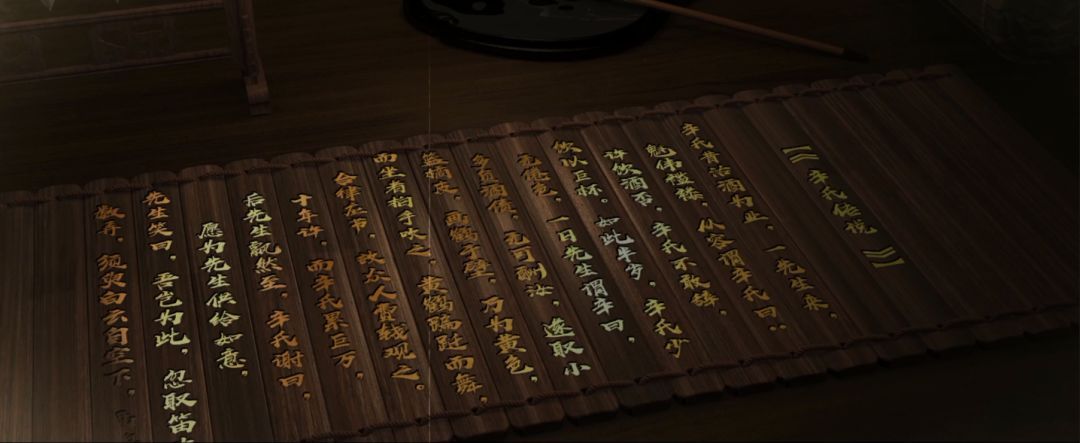 【《辛氏传说》】
辛氏昔沽酒为业,一先生来,
魁伟褴褛,从容谓辛氏曰:
许饮酒否,辛氏不敢辞,
饮以巨杯。如此半岁,辛氏少
无倦色,一日先生谓辛曰,
多负酒债,无可酬汝,遂取小
篮橘皮,画鹤于壁,乃为黄色,
而坐者拍手吹之,黄鹤蹁跹而舞,
合律应节,故众人费钱观之。
十年许,而辛氏累巨万,
后先生飘然至,辛氏谢曰,
愿为先生供给如意,
先生笑曰,吾岂为此,忽取笛
数弄,须臾白云自空下,